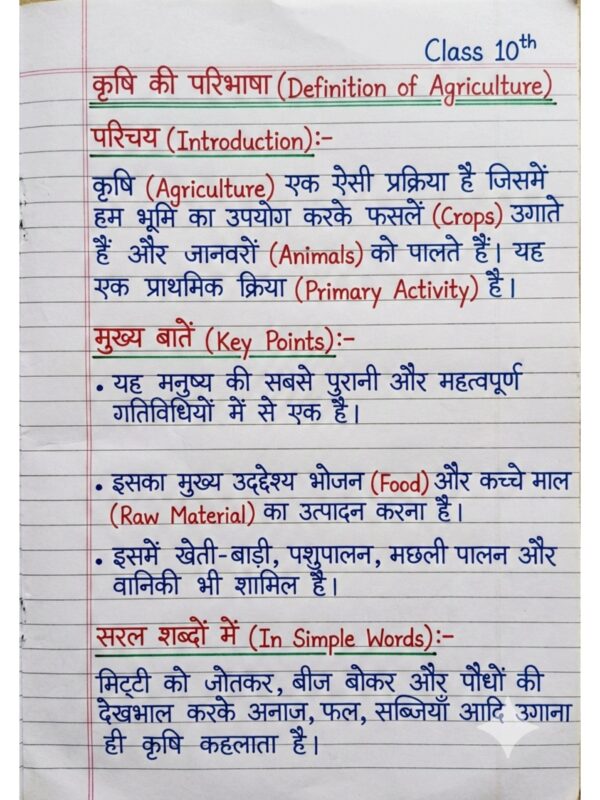 Class 10th
कृषि की परिभाषा (Definition of Agriculture)
परिचय (Introduction):-
कृषि (Agriculture) एक ऐसी प्रक्रिया है जिसमें
हम भूमि का उपयोग करके फसलें (Crops) उगाते
हैं और जानवरों (Animals) को पालते हैं। यह
एक प्राथमिक क्रिया (Primary Activity) है।
मुख्य बातें (Key Points):-
• यह मनुष्य की सबसे पुरानी और महत्वपूर्ण
गतिविधियों में से एक है।
• इसका मुख्य उद्देश्य भोजन (Food) और कच्चे माल
(Raw Material) का उत्पादन करना है।
• इसमें खेती-बाड़ी, पशुपालन, मछली पालन और
वानिकी भी शामिल है।
सरल शब्दों में (In Simple Words):-
मिट्टी को जोतकर, बीज बोकर और पौधों की
देखभाल करके अनाज, फल, सब्जियाँ आदि उगाना
ही कृषि कहलाता है।